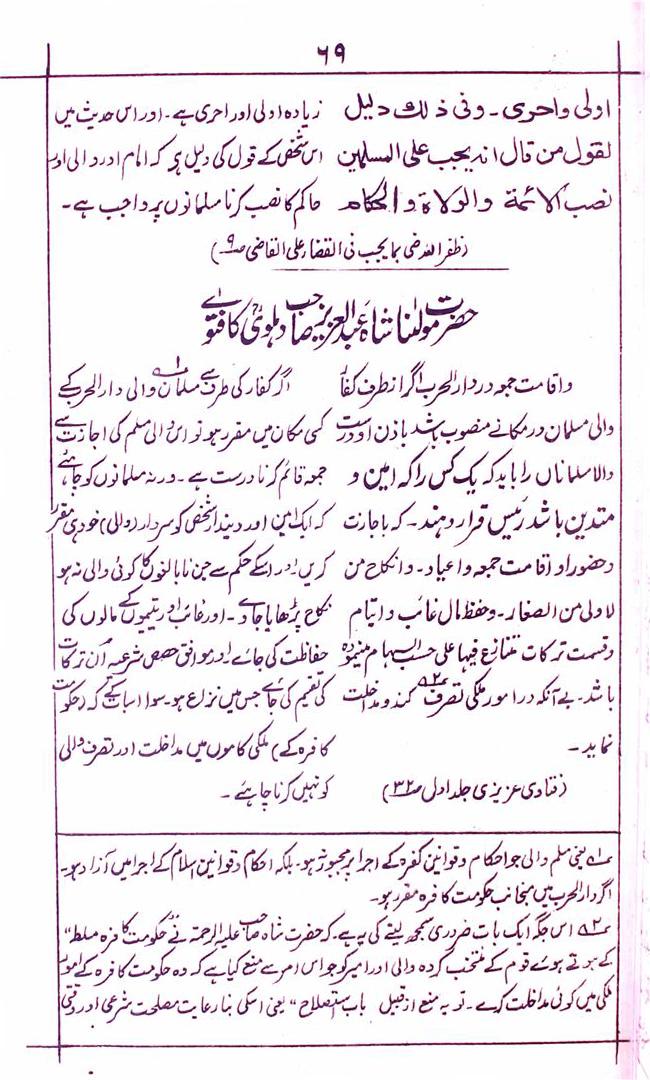 ٦٩
اولی واحری۔ وفی ذلك دلیل
لقول من قال انہ یجب علی المسلمین
نصب الائمۃ والولاۃ والحکام
زیادہ اولی اور احری ہے۔ اور اس حدیث میں
اس شخص کے قول کی دلیل ہے کہ امام اور والی اور
حاکم کا نصب کرنا مسلمانوں پر واجب ہے۔
(ظفر اللاضی بما یجب فی القضاء علی القاضی ص۹)
حضرت مولٰنا شاہ عبدالعزیز صاحب دہلویؒ کا فتوےٰ
واقامت جمعہ در دار الحرب اگر از طرف کفار
والی مسلمان در مکانے منصوب باشد باذن او درست
والا مسلمانان را باید کہ یک کس را کہ امین و
متدین باشد رئیس قرار دہند۔ کہ باجازت
وحضور او اقامت جمعہ واعیاد۔ وانکاح من
لا ولی من الصغار۔ وحفظ مال غائب و ایتام
وقسمت ترکات متنازع فیہا علی حسب السہام مینمودہ
باشد۔ بے آنکہ در امور ملکی تصرف ۲؎ کند و مداخلت
نماید۔
(فتاوی عزیزی جلد اول ص۳۲)
اگر کفار کی طرف سے مسلمان ۱؎ والی دار الحرب کے
کسی مکان میں مقرر ہو تو اس والی مسلم کی اجازت سے
جمعہ قائم کرنا درست ہے۔ ورنہ مسلمانوں کو چاہئے
کہ ایک امین اور دیندار شخص کو سردار (والی) خود ہی مقرر
کریں اور اسکے حکم سے جن نابالغوں کا کوئی والی نہ ہو
نکاح پڑھایا جاوے۔ اور غائب اور یتیموں کے مالوں کی
حفاظت کی جائے۔ اور موافق حصص شرعیہ اُن ترکات
کی تقسیم کی جائے جس میں نزاع ہو۔ سوا اسبات کے کہ (حکومت
کافرہ کے) ملکی کاموں میں مداخلت اور تصرف والی
کو نہیں کرنا چاہئے۔
۱؎ یعنی مسلم والی جو احکام وقوانین کفرہ کے اجرا پر مجبور نہ ہو۔ بلکہ احکام وقوانین اسلام کے اجرا میں آزاد ہو۔
اگر دار الحرب میں منجانب حکومت کافرہ مقرر ہو۔
۲؎ اس جگہ ایک بات ضروری سمجھ لینے کی یہ ہے۔ کہ حضرت شاہ صاحب علیہ الرحمۃ نے "حکومت کافرہ مسلط"
کے ہوتے ہوئے قوم کے منتخب کردہ والی اور امیر کو جو اس امر سے منع کیا ہے کہ وہ حکومت کافرہ کے امور
ملکی میں کوئی مداخلت کرے۔ تو یہ منع از قبیل "باب استصلاح" یعنی اسکی بنا رعایت مصلحت شرعی اور وقتی